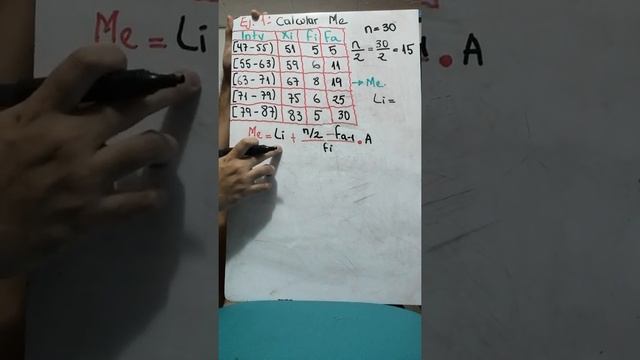 Ej. 1: Calcular Me
Intv Xi fi Fa
[47-55) 51 5 5
[55-63) 59 6 11
[63-71) 67 8 19 → Me.
[71-79) 75 6 25
[79-87) 83 5 30
n=30
n/2 = 30/2 = 15
Li=
Me = Li + n/2 - fa-1 / fi . A
Me = Li
-1 . A